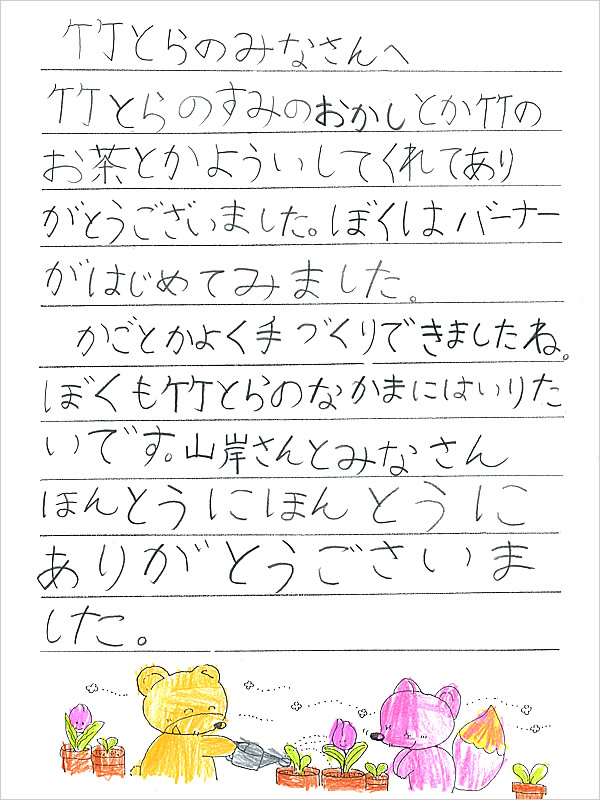 竹とらのみなさんへ
竹とらのすみのおかしとか竹の
お茶とかよういしてくれてあり
がとうございました。ぼくはバーナー
がはじめてみました。
かごとかよく手づくりできましたね。
ぼくも竹とらのなかまにはいりた
いです。山岸さんとみなさん
ほんとうにほんとうに
ありがとうごさいま
した。